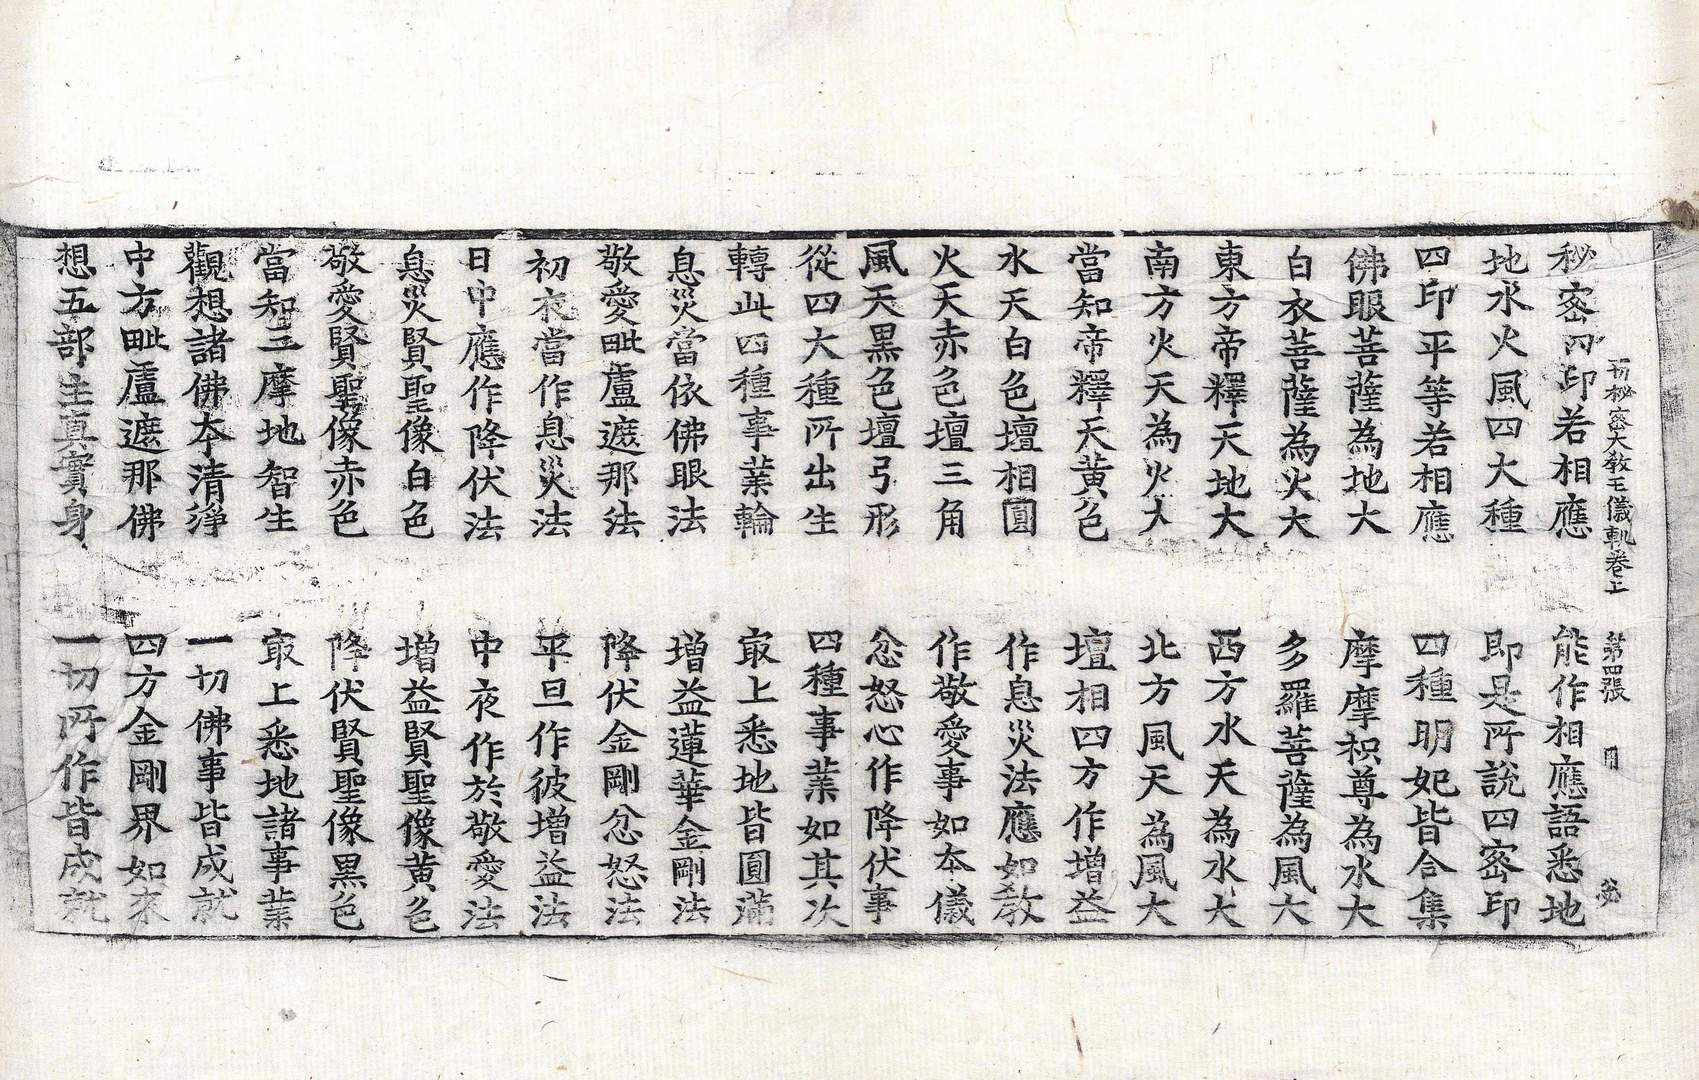 祕密大教王儀軌卷上 第四張
秘密四印若相應 能作相應語悉地
地水火風四大種 即是所說四密印
四印平等若相應 四種明妃皆合集
佛眼菩薩為地大 摩摩枳尊為水大
白衣菩薩為火大 多羅菩薩為風大
東方帝釋天地大 西方水天為水大
南方火天為火大 北方風天為風大
當知帝釋天黃色 壇相四方作增益
水天白色壇相圓 作息災法應如教
火天赤色壇三角 作敬愛事如本儀
風天黑色壇弓形 忿怒心作降伏事
從四大種所出生 四種事業如其次
轉此四種事業輪 㝡上悉地皆圓滿
息災當依佛眼法 增益蓮華金剛法
敬愛毗盧遮那法 降伏金剛忿怒法
初夜當作息災法 平旦作彼增益法
日中應作降伏法 中夜作於敬愛法
息災賢聖像白色 增益賢聖像黃色
敬愛賢聖像赤色 降伏賢聖像黑色
當知三摩地智生 㝡上悉地諸事業
觀想諸佛本清淨 一切佛事皆成就
中方毗盧遮那佛 四方金剛界如來
想五部主真實身 一切所作皆成就